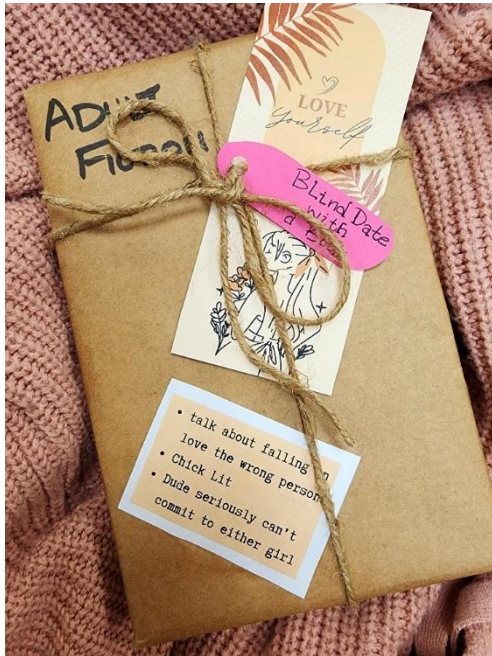 ADULT
FICTION
LOVE
yourself
Blind Date
with
a
• talk about falling
love the wrong person
• Chick Lit
• Dude seriously can't
commit to either girl